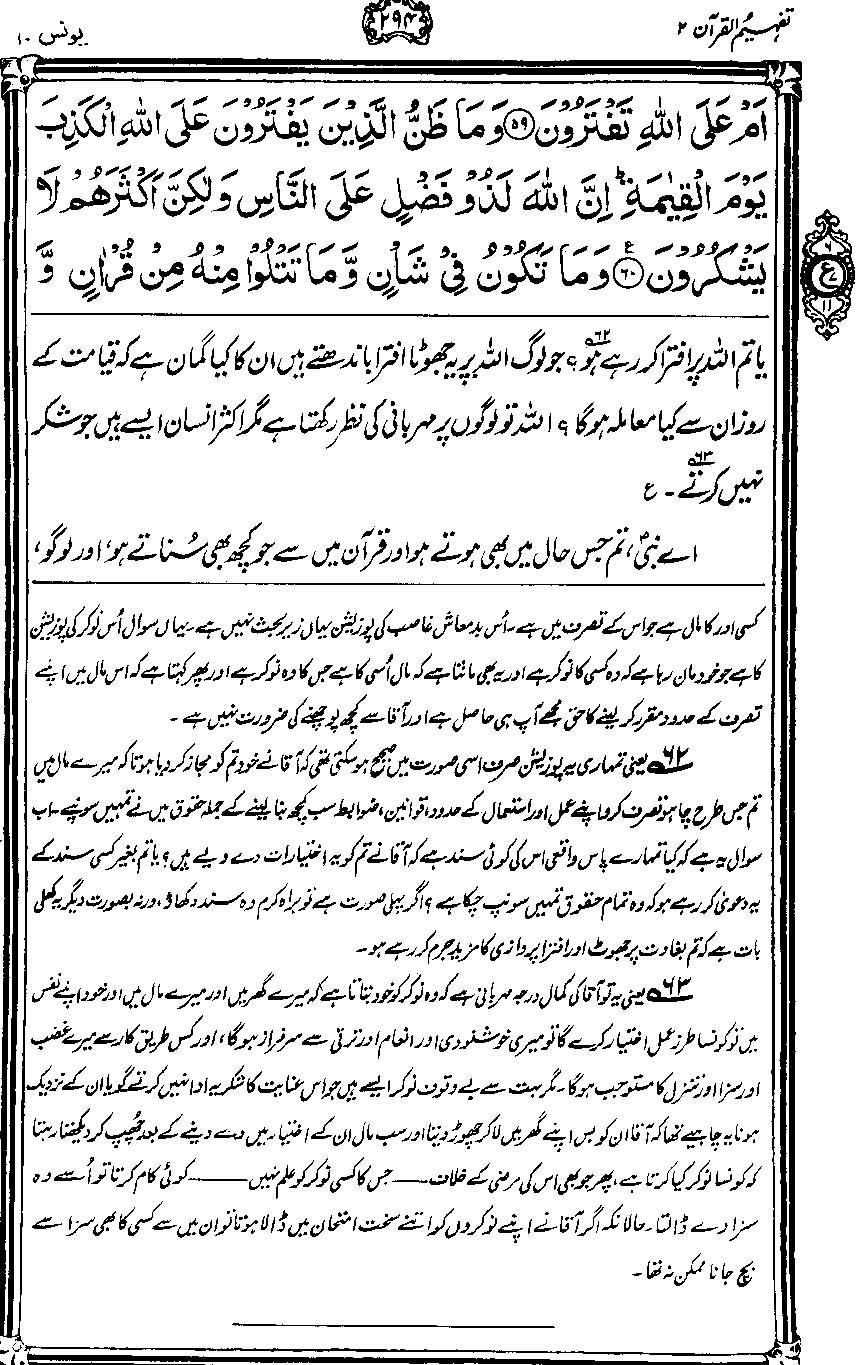 تفہیم القرآن ۲
۲۹۴
یونس ۱۰
اَمْ عَلَى اللّٰهِ تَفْتَرُوْنَ ﴿۵۹﴾ وَمَا ظَنُّ الَّذِيْنَ يَفْتَرُوْنَ عَلَى اللّٰهِ الْكَذِبَ
يَوْمَ الْقِيٰمَةِ ؕ اِنَّ اللّٰهَ لَذُوْ فَضْلٍ عَلَى النَّاسِ وَلٰكِنَّ اَكْثَرَهُمْ لَا
يَشْكُرُوْنَ ﴿۶۰﴾ ع وَمَا تَكُوْنُ فِيْ شَاْنٍ وَّمَا تَتْلُوْا مِنْهُ مِنْ قُرْاٰنٍ وَّ
۶
ع
۱۱
یا تم اللہ پر افترا کر رہے ہو؟۶۲ جو لوگ اللہ پر یہ جھوٹا افترا باندھتے ہیں ان کا کیا گمان ہے کہ قیامت کے
روز ان سے کیا معاملہ ہوگا؟ اللہ تو لوگوں پر مہربانی کی نظر رکھتا ہے مگر اکثر انسان ایسے ہیں جو شکر
نہیں کرتے۶۳۔ ع
اے نبیؐ، تم جس حال میں بھی ہوتے ہو اور قرآن میں سے جو کچھ بھی سُناتے ہو، اور لوگو،
کسی اور کا مال ہے جو اس کے تصرف میں ہے۔ اُس بدمعاش غاصب کی پوزیشن یہاں زیر بحث نہیں ہے۔ یہاں سوال اُس نوکر کی پوزیشن
کا ہے جو خود مان رہا ہے کہ وہ کسی کا نوکر ہے اور یہ بھی مانتا ہے کہ مال اُسی کا ہے جس کا وہ نوکر ہے اور پھر کہتا ہے کہ اس مال میں اپنے
تصرف کے حدود مقرر کر لینے کا حق مجھے آپ ہی حاصل ہے اور آقا سے کچھ پوچھنے کی ضرورت نہیں ہے۔
۶۲ یعنی تمہاری یہ پوزیشن صرف اسی صورت میں صحیح ہو سکتی تھی کہ آقا نے خود تم کو مجاز کر دیا ہوتا کہ میرے مال میں
تم جس طرح چاہو تصرف کرو، اپنے عمل اور استعمال کے حدود، قوانین، ضوابط سب کچھ بنا لینے کے جملہ حقوق میں نے تمہیں سونپے۔ اب
سوال یہ ہے کہ کیا تمہارے پاس واقعی اس کی کوئی سند ہے کہ آقا نے تم کو یہ اختیارات دے دیے ہیں؟ یا تم بغیر کسی سند کے
یہ دعویٰ کر رہے ہو کہ وہ تمام حقوق تمہیں سونپ چکا ہے؟ اگر پہلی صورت ہے تو براہ کرم وہ سند دکھاؤ، ورنہ بصورت دیگر یہ کھلی
بات ہے کہ تم بغاوت پر جھوٹ اور افترا پردازی کا مزید جرم کر رہے ہو۔
۶۳ یعنی یہ تو آقا کی کمال درجہ مہربانی ہے کہ وہ نوکر کو خود بتاتا ہے کہ میرے گھر میں اور میرے مال میں اور خود اپنے نفس
میں تو کونسا طرز عمل اختیار کرے گا تو میری خوشنودی اور انعام اور ترقی سے سرفراز ہوگا، اور کس طریق کار سے میرے غضب
اور سزا اور تنزل کا مستوجب ہوگا۔ مگر بہت سے بے وقوف نوکر ایسے ہیں جو اس عنایت کا شکریہ ادا نہیں کرتے گویا ان کے نزدیک
ہونا یہ چاہیے تھا کہ آقا ان کو بس اپنے گھر میں لا کر چھوڑ دیتا اور سب مال ان کے اختیار میں دے دینے کے بعد چُھپ کر دیکھتا رہتا
کہ کونسا نوکر کیا کرتا ہے، پھر جو بھی اس کی مرضی کے خلاف ـــــ جس کا کسی نوکر کو علم نہیں ـــــ کوئی کام کرتا تو اُسے وہ
سزا دے ڈالتا۔ حالانکہ اگر آقا نے اپنے نوکروں کو اتنے سخت امتحان میں ڈالا ہوتا تو ان میں سے کسی کا بھی سزا سے
بچ جانا ممکن نہ تھا۔